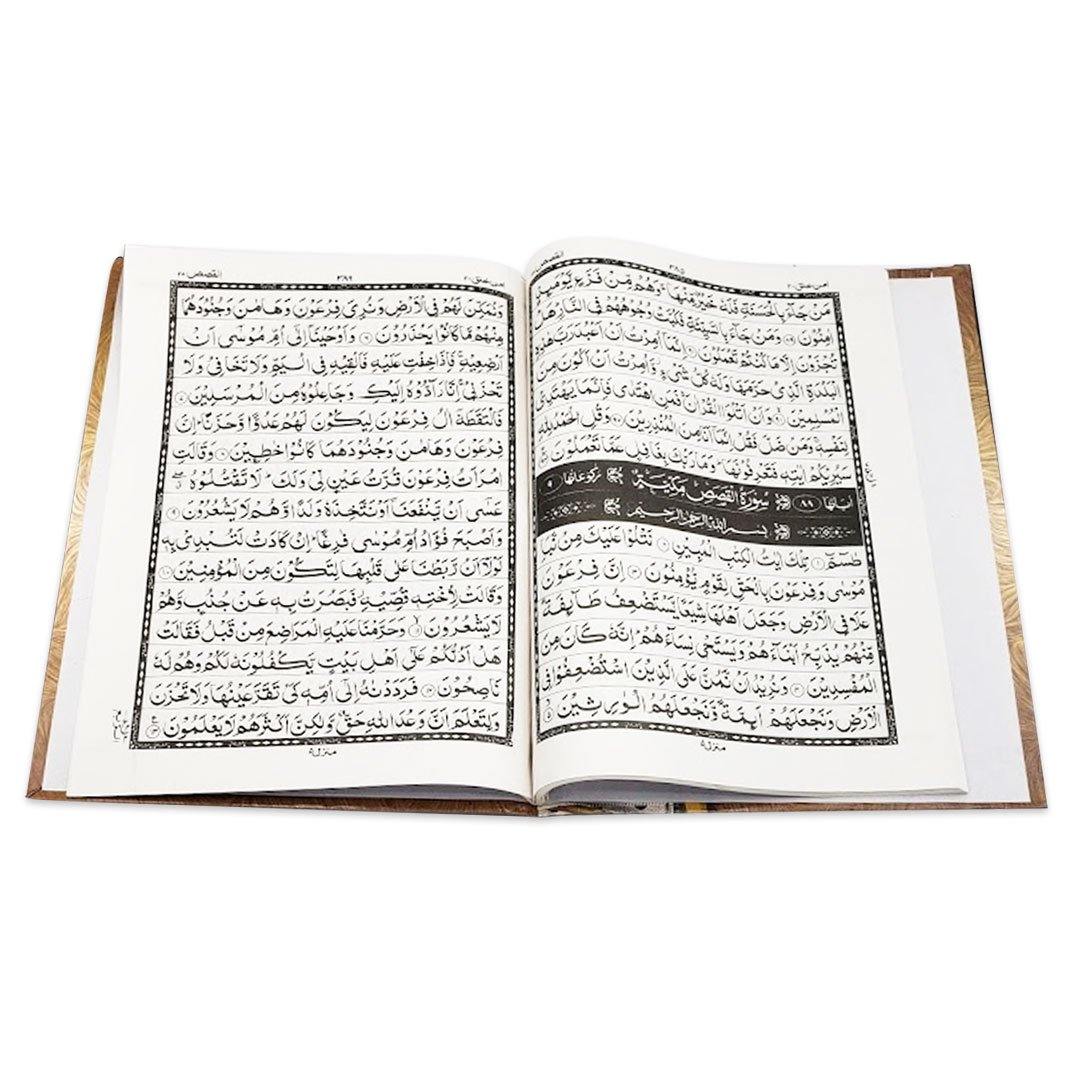 القصص
٣٨٥
امن خلق ٢٠
مَنْ جَآءَ بِالْحَسَنَةِ فَلَهٗ خَيْرٌ مِّنْهَا ۚ وَهُمْ مِّنْ فَزَعٍ يَّوْمَىِٕذٍ
اٰمِنُوْنَ ۝٨٩ وَمَنْ جَآءَ بِالسَّيِّئَةِ فَكُبَّتْ وُجُوْهُهُمْ فِى النَّارِ ؕ هَلْ
تُجْزَوْنَ اِلَّا مَا كُنْتُمْ تَعْمَلُوْنَ ۝ اِنَّمَاۤ اُمِرْتُ اَنْ اَعْبُدَ رَبَّ هٰذِهِ
الْبَلْدَةِ الَّذِىْ حَرَّمَهَا وَلَهٗ كُلُّ شَىْءٍ ؗ وَّاُمِرْتُ اَنْ اَكُوْنَ مِنَ
الْمُسْلِمِيْنَ ۝ وَاَنْ اَتْلُوَا الْقُرْاٰنَ ۚ فَمَنِ اهْتَدٰى فَاِنَّمَا يَهْتَدِىْ
لِنَفْسِهٖ ۚ وَمَنْ ضَلَّ فَقُلْ اِنَّمَاۤ اَنَا مِنَ الْمُنْذِرِيْنَ ۝ وَقُلِ الْحَمْدُ لِلّٰهِ
سَيُرِيْكُمْ اٰيٰتِهٖ فَتَعْرِفُوْنَهَا ؕ وَمَا رَبُّكَ بِغَافِلٍ عَمَّا تَعْمَلُوْنَ
اٰياتها ٨٨ سُوْرَةُ الْقَصَصِ مَكِّيَّةٌ ركوعاتها ٩
بِسْمِ اللّٰهِ الرَّحْمٰنِ الرَّحِيْمِ
طٰسٓمّٓ ۝١ تِلْكَ اٰيٰتُ الْكِتٰبِ الْمُبِيْنِ ۝٢ نَتْلُوْا عَلَيْكَ مِنْ نَّبَاِ
مُوْسٰى وَفِرْعَوْنَ بِالْحَقِّ لِقَوْمٍ يُّؤْمِنُوْنَ ۝٣ اِنَّ فِرْعَوْنَ
عَلَا فِى الْاَرْضِ وَجَعَلَ اَهْلَهَا شِيَعًا يَّسْتَضْعِفُ طَآىِٕفَةً
مِّنْهُمْ يُذَبِّحُ اَبْنَآءَهُمْ وَيَسْتَحْىٖ نِسَآءَهُمْ ؕ اِنَّهٗ كَانَ مِنَ
الْمُفْسِدِيْنَ ۝٤ وَنُرِيْدُ اَنْ نَّمُنَّ عَلَى الَّذِيْنَ اسْتُضْعِفُوْا فِى
الْاَرْضِ وَنَجْعَلَهُمْ اَىِٕمَّةً وَّنَجْعَلَهُمُ الْوٰرِثِيْنَ ۝٥
القصص ٢٨
٣٨٦
امن خلق ٢٠
وَنُمَكِّنَ لَهُمْ فِى الْاَرْضِ وَنُرِىَ فِرْعَوْنَ وَهَامٰنَ وَجُنُوْدَهُمَا
مِنْهُمْ مَّا كَانُوْا يَحْذَرُوْنَ ۝٦ وَاَوْحَيْنَاۤ اِلٰۤى اُمِّ مُوْسٰۤى اَنْ
اَرْضِعِيْهِ ۚ فَاِذَا خِفْتِ عَلَيْهِ فَاَلْقِيْهِ فِى الْيَمِّ وَلَا تَخَافِىْ وَلَا
تَحْزَنِىْ ۚ اِنَّا رَآدُّوْهُ اِلَيْكِ وَجَاعِلُوْهُ مِنَ الْمُرْسَلِيْنَ ۝٧
فَالْتَقَطَهٗۤ اٰلُ فِرْعَوْنَ لِيَكُوْنَ لَهُمْ عَدُوًّا وَّحَزَنًا ؕ اِنَّ
فِرْعَوْنَ وَهَامٰنَ وَجُنُوْدَهُمَا كَانُوْا خٰطِـِٕيْنَ ۝٨ وَقَالَتِ
امْرَاَتُ فِرْعَوْنَ قُرَّتُ عَيْنٍ لِّىْ وَلَكَ ؕ لَا تَقْتُلُوْهُ
عَسٰۤى اَنْ يَّنْفَعَنَاۤ اَوْ نَتَّخِذَهٗ وَلَدًا وَّهُمْ لَا يَشْعُرُوْنَ ۝٩
وَاَصْبَحَ فُؤَادُ اُمِّ مُوْسٰى فٰرِغًا ؕ اِنْ كَادَتْ لَتُبْدِىْ بِهٖ
لَوْلَاۤ اَنْ رَّبَطْنَا عَلٰى قَلْبِهَا لِتَكُوْنَ مِنَ الْمُؤْمِنِيْنَ ۝١٠
وَقَالَتْ لِاُخْتِهٖ قُصِّيْهِ ؗ فَبَصُرَتْ بِهٖ عَنْ جُنُبٍ وَّهُمْ
لَا يَشْعُرُوْنَ ۝١١ وَحَرَّمْنَا عَلَيْهِ الْمَرَاضِعَ مِنْ قَبْلُ فَقَالَتْ
هَلْ اَدُلُّكُمْ عَلٰۤى اَهْلِ بَيْتٍ يَّكْفُلُوْنَهٗ لَكُمْ وَهُمْ لَهٗ
نٰصِحُوْنَ ۝١٢ فَرَدَدْنٰهُ اِلٰۤى اُمِّهٖ كَىْ تَقَرَّ عَيْنُهَا وَلَا تَحْزَنَ
وَلِتَعْلَمَ اَنَّ وَعْدَ اللّٰهِ حَقٌّ وَّلٰكِنَّ اَكْثَرَهُمْ لَا يَعْلَمُوْنَ ۝١٣